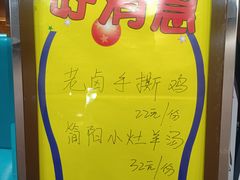 好消息
老卤手撕鸡
22元/份
简阳小灶羊汤
32元/份